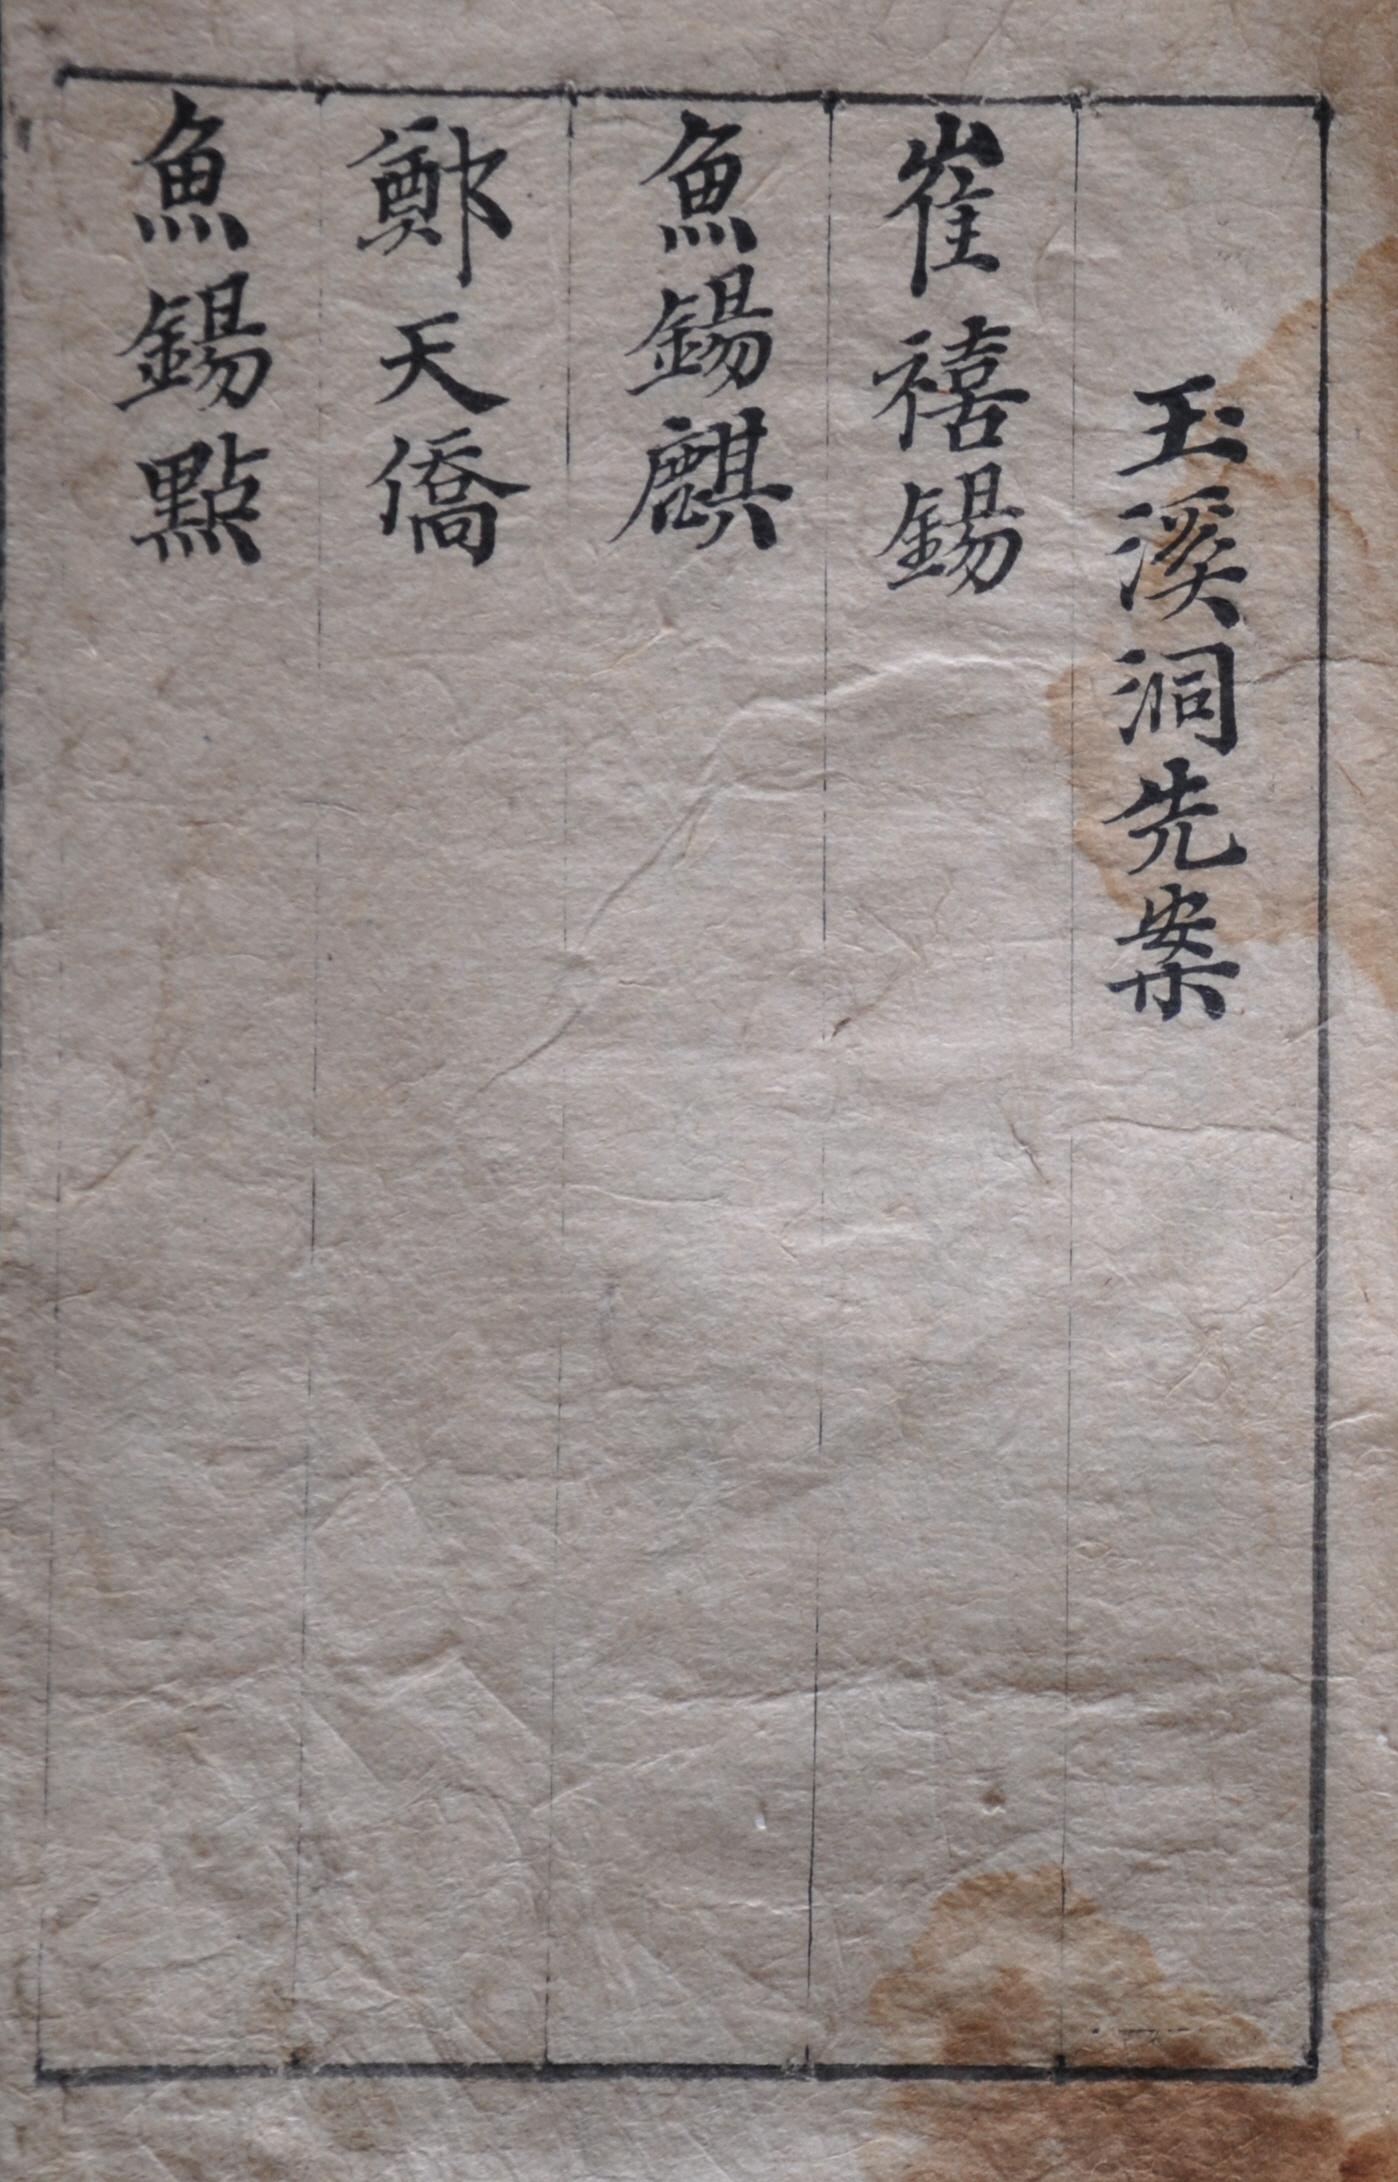 玉溪洞先案
崔禧錫
魚錫麒
鄭天僑
魚錫點